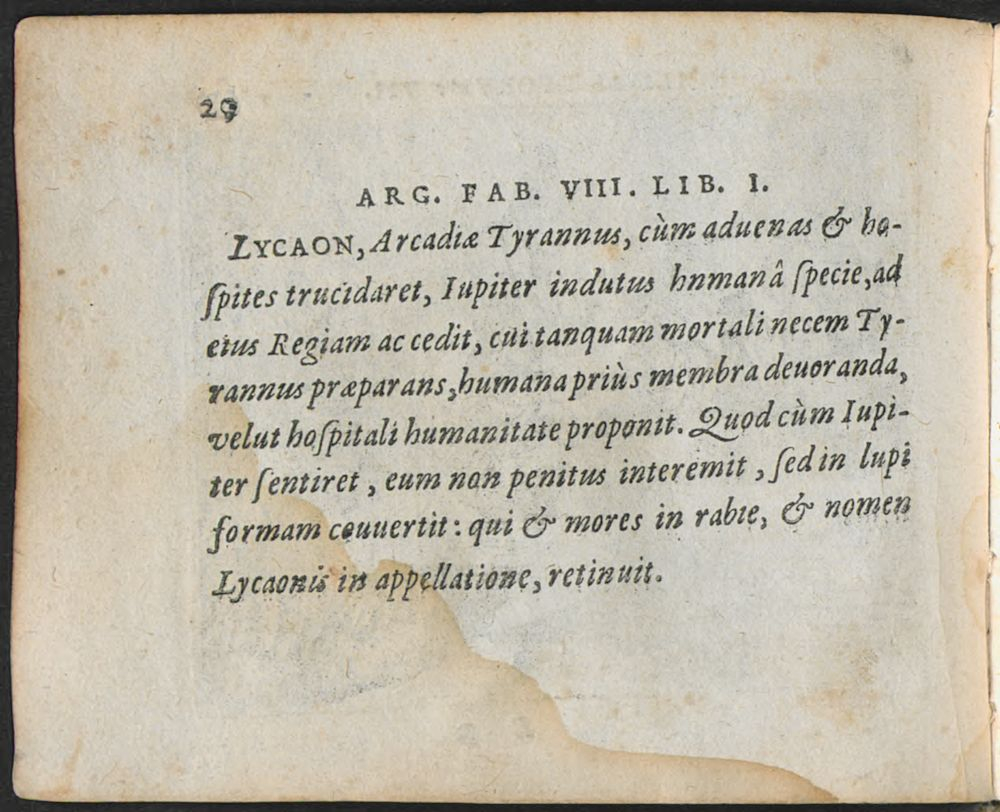 29
ARG. FAB. VIII. LIB. I.
LYCAON, Arcadiæ Tyrannus, cùm aduenas & ho-
ſpites trucidaret, Iupiter indutus hnmanâ ſpecie, ad
eius Regiam accedit, cui tanquam mortali necem Ty-
rannus præparans, humana priùs membra deuoranda,
velut hoſpitali humanitate proponit. Quod cùm Iupi-
ter ſentiret, eum non penitus interemit, ſed in lupi
formam couuertit: qui & mores in rabie, & nomen
Lycaonis in appellatione, retinuit.